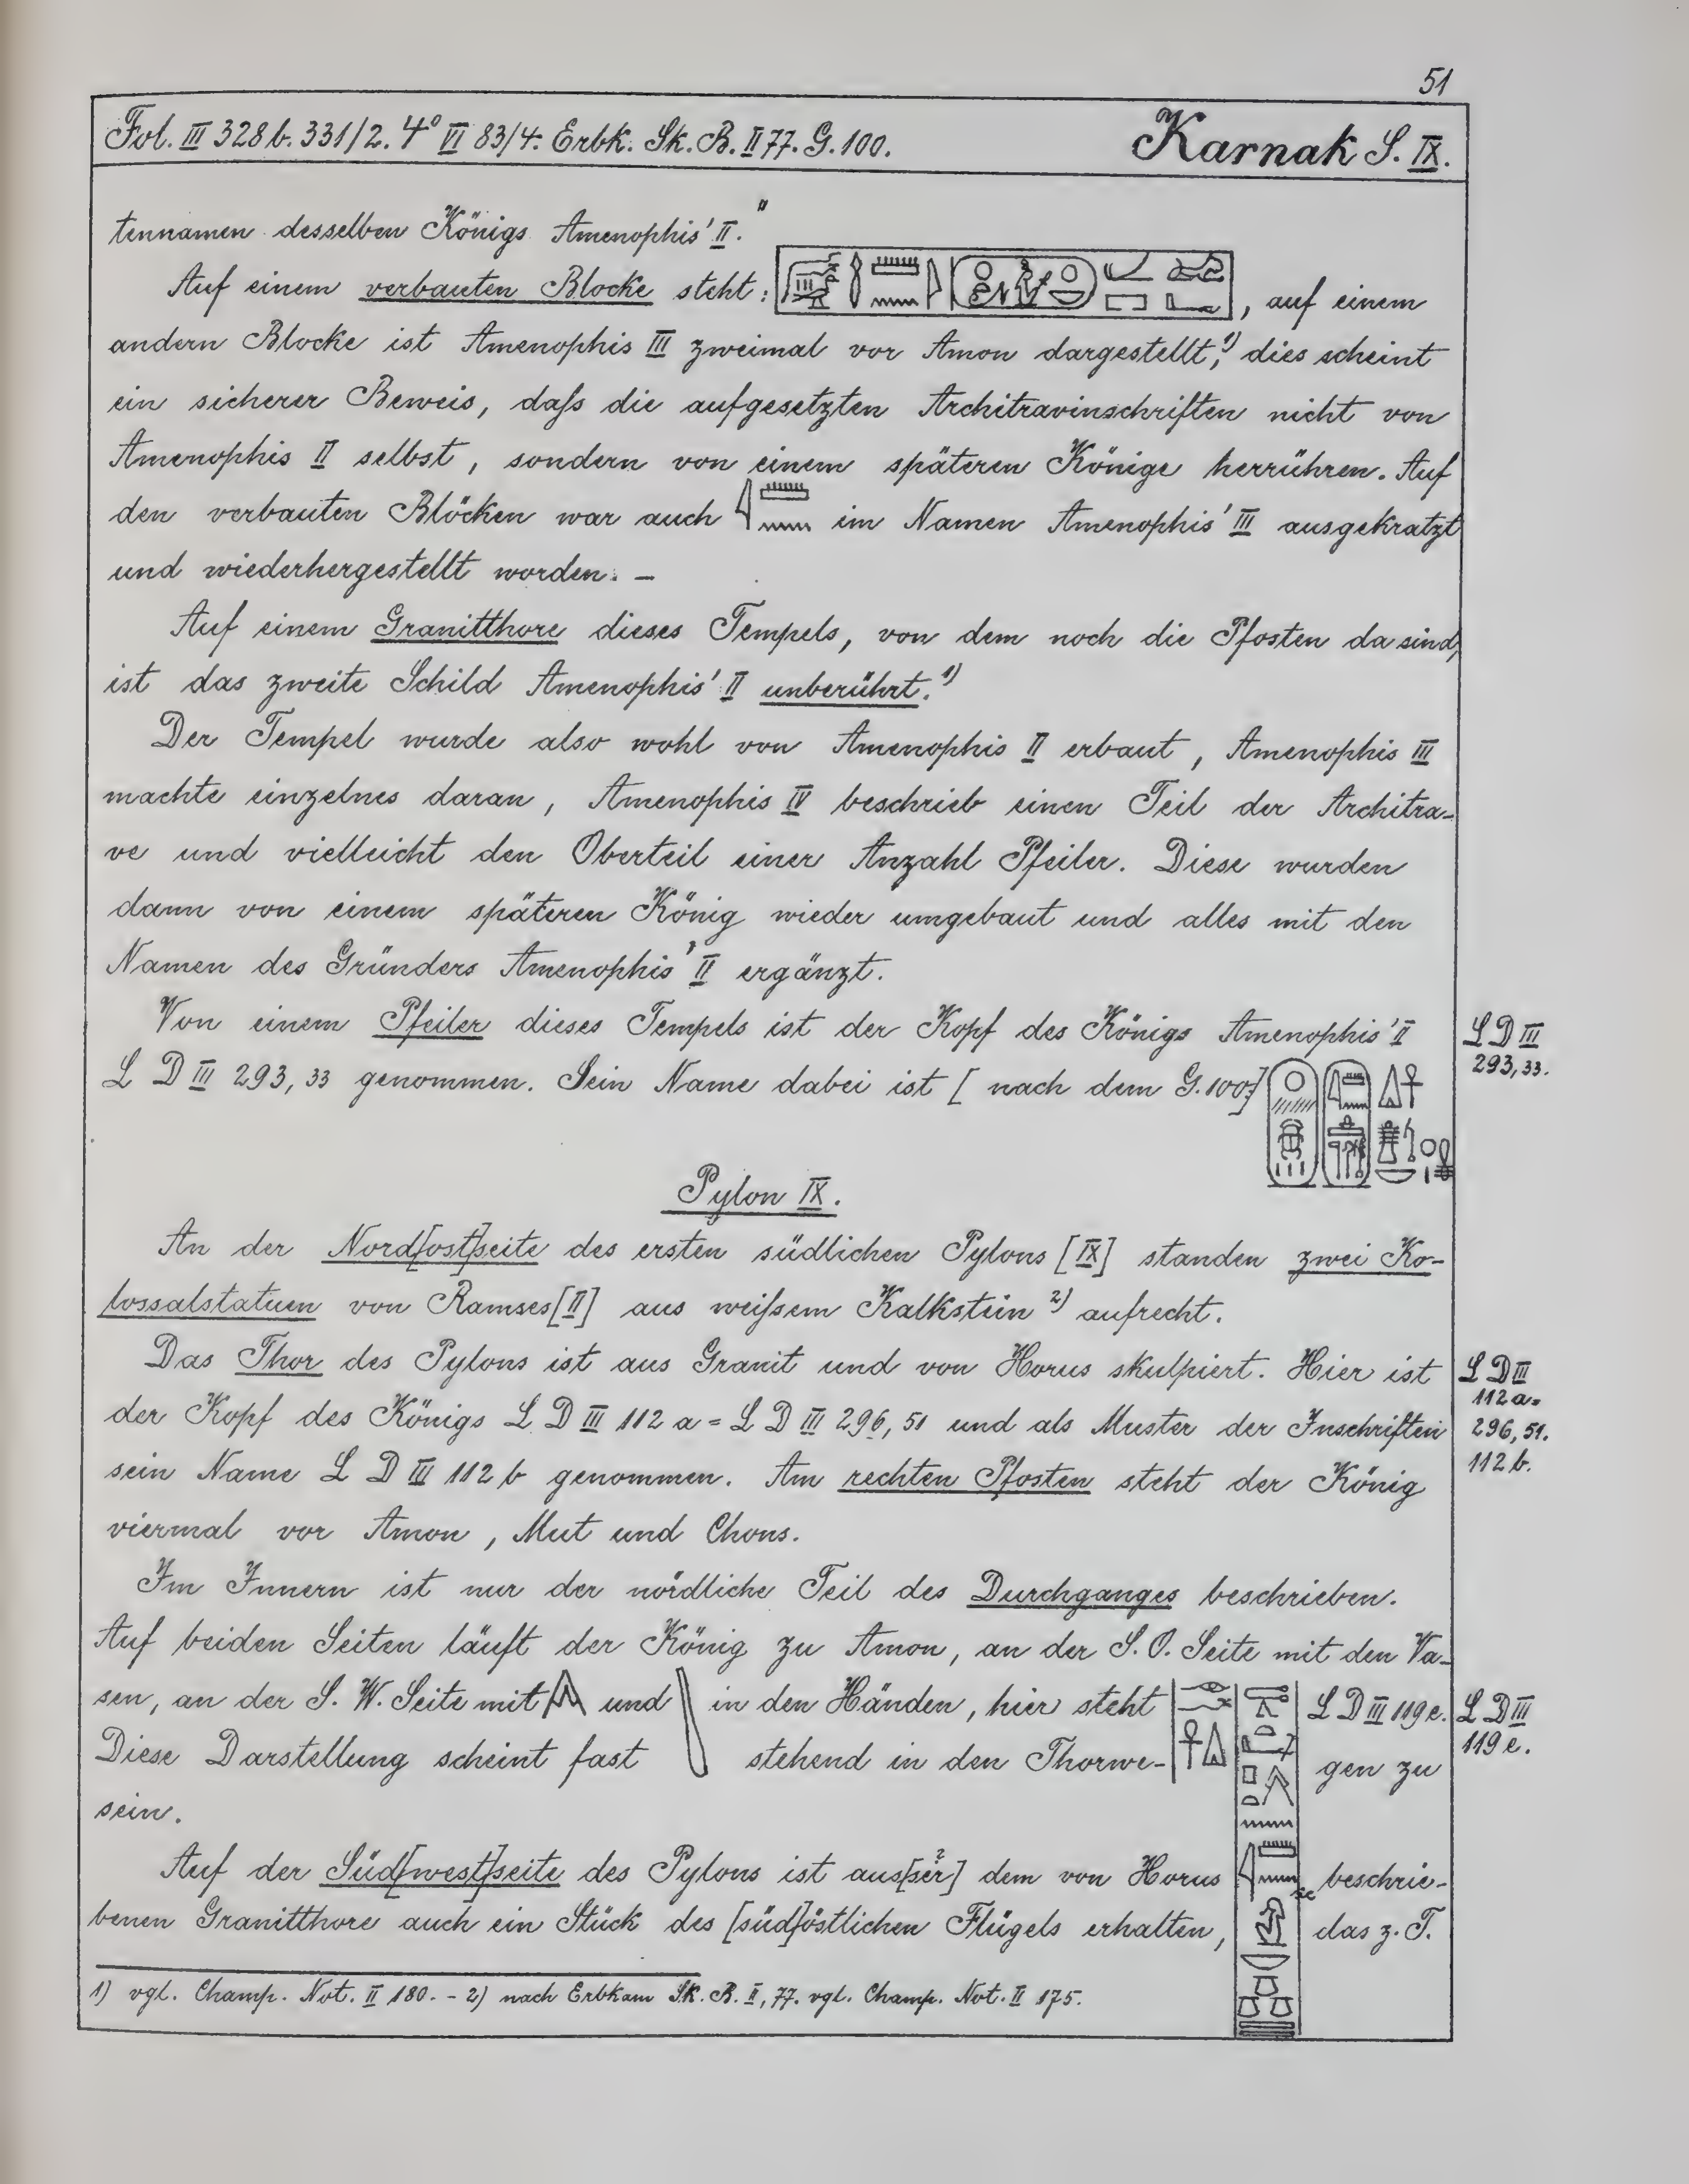 51
Fol. III 328 b. 331/2. 4° VI 83/4. Erbk. Sk. B. II 77. G. 100.
Karnak S. IX.
tennamen desselben Königs Amenophis' II."
Auf einem verbauten Blocke steht: , auf einem
andern Blocke ist Amenophis III zweimal vor Amon dargestellt,1) dies scheint
ein sicherer Beweis, daſs die aufgesetzten Architravinschriften nicht von
Amenophis II selbst, sondern von einem späteren Könige herrühren. Auf
den verbauten Blöcken war auch im Namen Amenophis' III ausgekratzt
und wiederhergestellt worden. –
Auf einem Granitthore dieses Tempels, von dem noch die Pfosten da sind,
ist das zweite Schild Amenophis' II unberührt.1)
Der Tempel wurde also wohl von Amenophis II erbaut, Amenophis III
machte einzelnes daran, Amenophis IV beschrieb einen Teil der Architra-
ve und vielleicht den Oberteil einer Anzahl Pfeiler. Diese wurden
dann von einem späteren König wieder umgebaut und alles mit den
Namen des Gründers Amenophis' II ergänzt.
Von einem Pfeiler dieses Tempels ist der Kopf des Königs Amenophis' II
L D III 293, 33 genommen. Sein Name dabei ist [nach dem G. 100]
L D III
293, 33.
Pylon IX.
An der Nord[ost]seite des ersten südlichen Pylons [IX] standen zwei Ko-
lossalstatuen von Ramses [II] aus weiſsem Kalkstein 2) aufrecht.
Das Thor des Pylons ist aus Granit und von Horus skulpiert. Hier ist
der Kopf des Königs L D III 112 a = L D III 296, 51 und als Muster der Inschriften
sein Name L D III 112 b genommen. Am rechten Pfosten steht der König
viermal vor Amon, Mut und Chons.
L D III
112 a =
296, 51.
112 b.
Im Innern ist nur der nördliche Teil des Durchganges beschrieben.
Auf beiden Seiten läuft der König zu Amon, an der S. O. Seite mit den Va-
sen, an der S. W. Seite mit und in den Händen, hier steht L D III 119 e.
Diese Darstellung scheint fast stehend in den Thorwe- gen zu
sein.
L D III
119 e.
Auf der Süd[west]seite des Pylons ist aus[ser?] dem von Horus sic beschrie-
benen Granitthore auch ein Stück des [süd]östlichen Flügels erhalten, das z. T.
1) vgl. Champ. Not. II 180. – 2) nach Erbkam Sk. B. II, 77. vgl. Champ. Not. II 175.